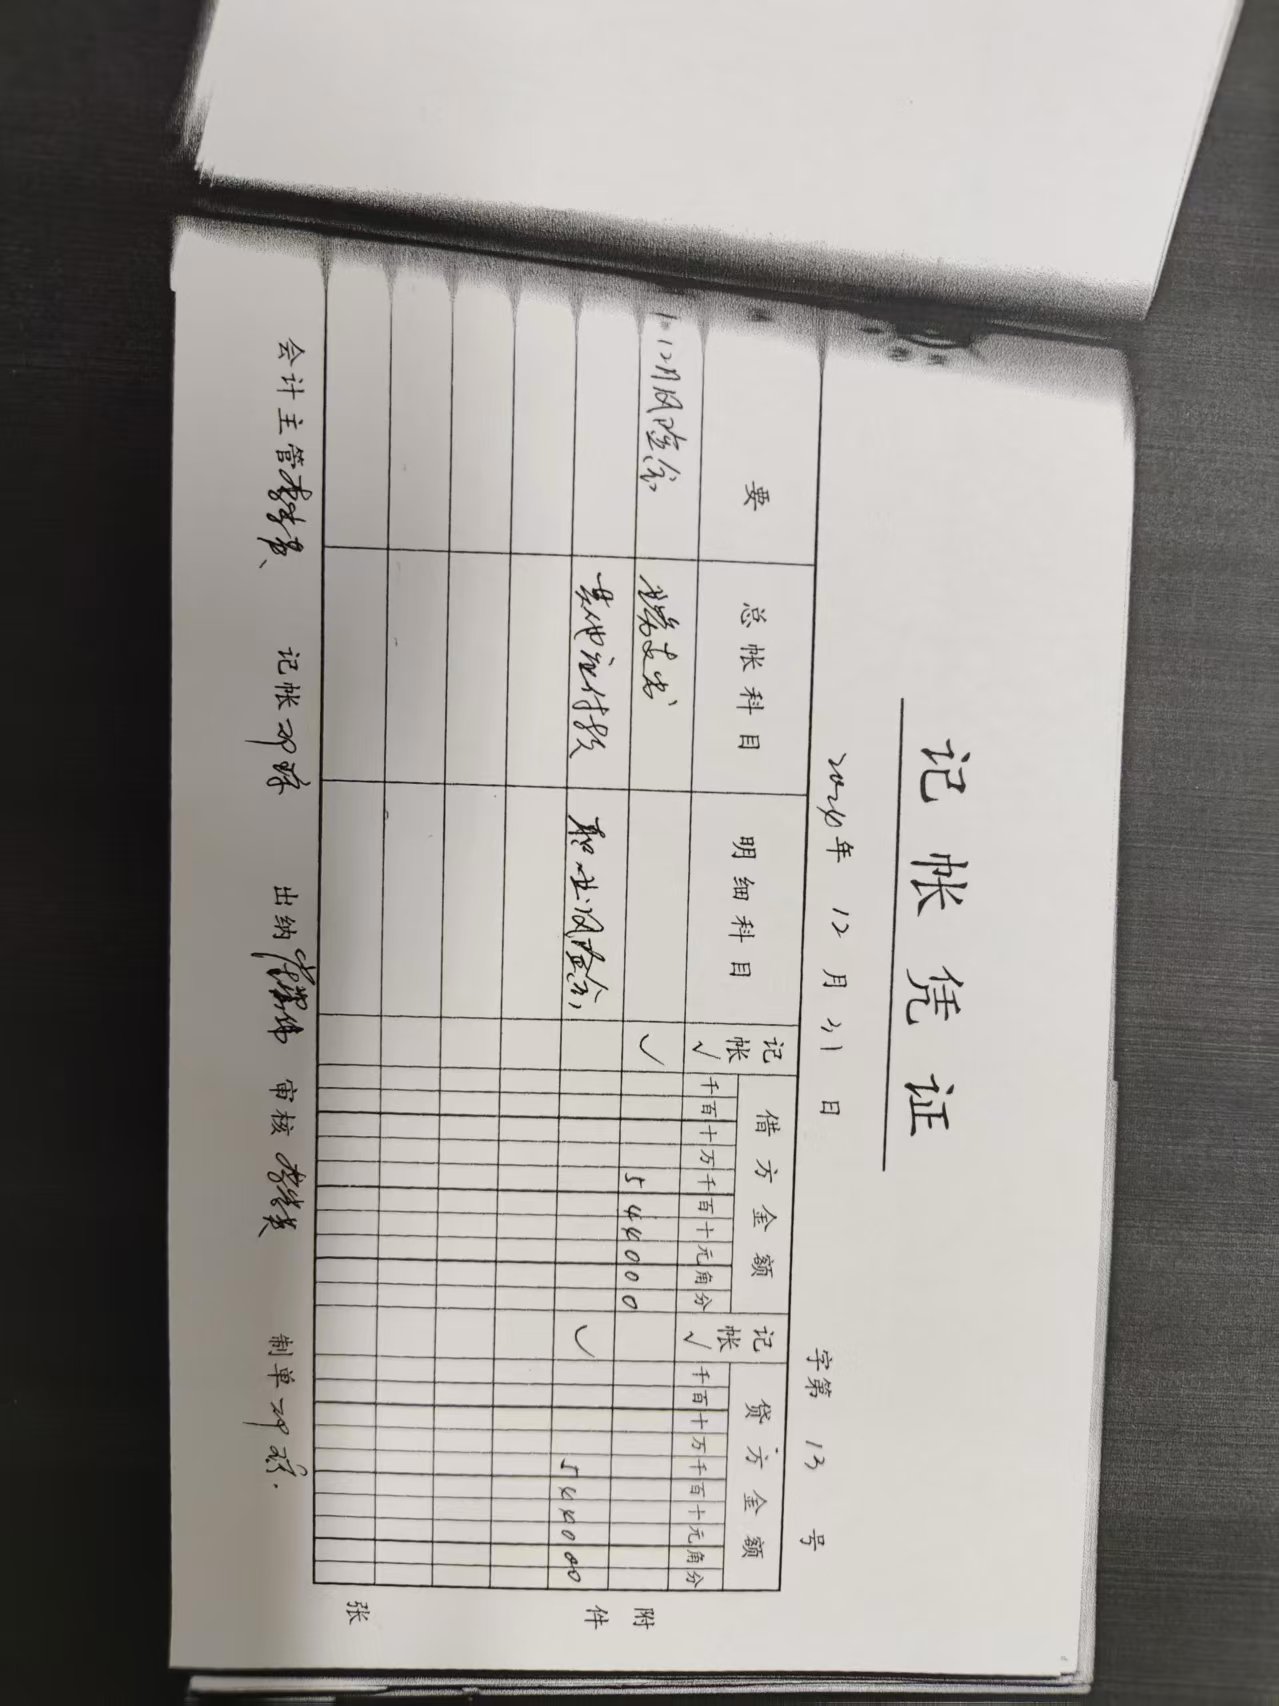 记帐凭证
2024年 12月 31日 字第 13 号
要 总帐科目 明细科目 记帐√ 借方金额 记帐√ 贷方金额
千百十万千百十元角分 千百十万千百十元角分
1-12月风险金 业务支出 ✓ 544000
其他应付款 职业风险金 ✓ 544000
附件 张
会计主管 记帐 出纳 审核 制单